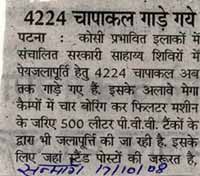 4224 चापाकल गाड़े गये
पटना : कोसी प्रभावित इलाकों में
संचालित सरकारी साहाय्य शिविरों में
पेयजलापूर्ति हेतु 4224 चापाकल अब
तक गाड़े गए हैं. इसके अलावे मेगा
कैम्पों में चार बोरिंग कर फिलटर मशीन
के जरिए 500 लीटर पी.वी.वी. टैंकों के
द्वारा भी जलापूर्ति की जा रही है. इसके
लिए जहां स्टैंड पोस्टों की जरूरत है,
सन्मार्ग 17/10/08